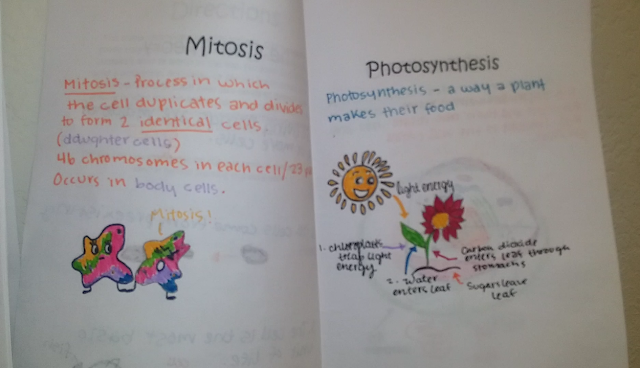 Mitosis
Mitosis - Process in which
the cell duplicates and divides
to form 2 identical cells.
(daughter cells)
46 chromosomes in each cell/23
Occurs in body cells.
Mitosis!
Photosynthesis
Photosynthesis - a way a plant
makes their food
light energy
1. chloroplasts
trap light
energy
2. Water
enters leaf
Carbon dioxide
enters leaf through
stomata
Sugars leave
leaf